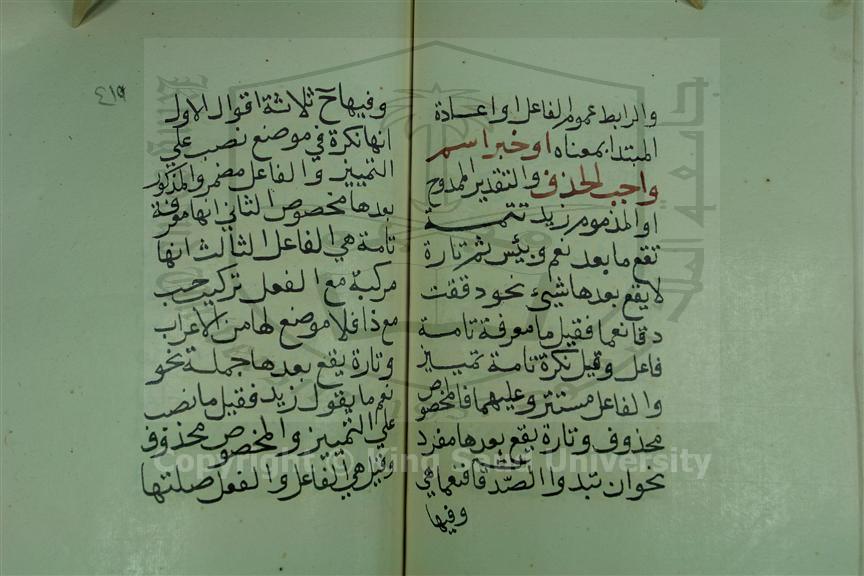 والرابط عموم الفاعل او اعادة
المبتدا بمعناه او خبر اسم
واجب الحذف والتقدير الممدوح
او المذموم زيد تتمة
تقع ما بعد نعم وبئس ثم تارة
لا يقع بعدها شيء نحو دققت
دقا نعما فقيل ما معرفة تامة
فاعل وقيل نكرة تامة تمييز
والفاعل مستتر وعليهما فالمخصوص
محذوف وتارة يقع بعدها مفرد
نحو ان تبدوا الصدقات فنعما هي
وفيها
٤١٩
وفيها ح ثلاثة اقوال الاول
انها نكرة في موضع نصب علي
التمييز والفاعل مضمر والمذكور
بعدها مخصوص الثاني انها معرفة
تامة هي الفاعل الثالث انها
مركبة مع الفعل تركيب حب
مع ذا فلا موضع لها من الاعراب
وتارة يقع بعدها جملة نحو
نعم ما يقول زيد فقيل ما نصب
علي التمييز والمخصوص محذوف
وقيل هي الفاعل والفعل صلتها
Copyright © King Saud University